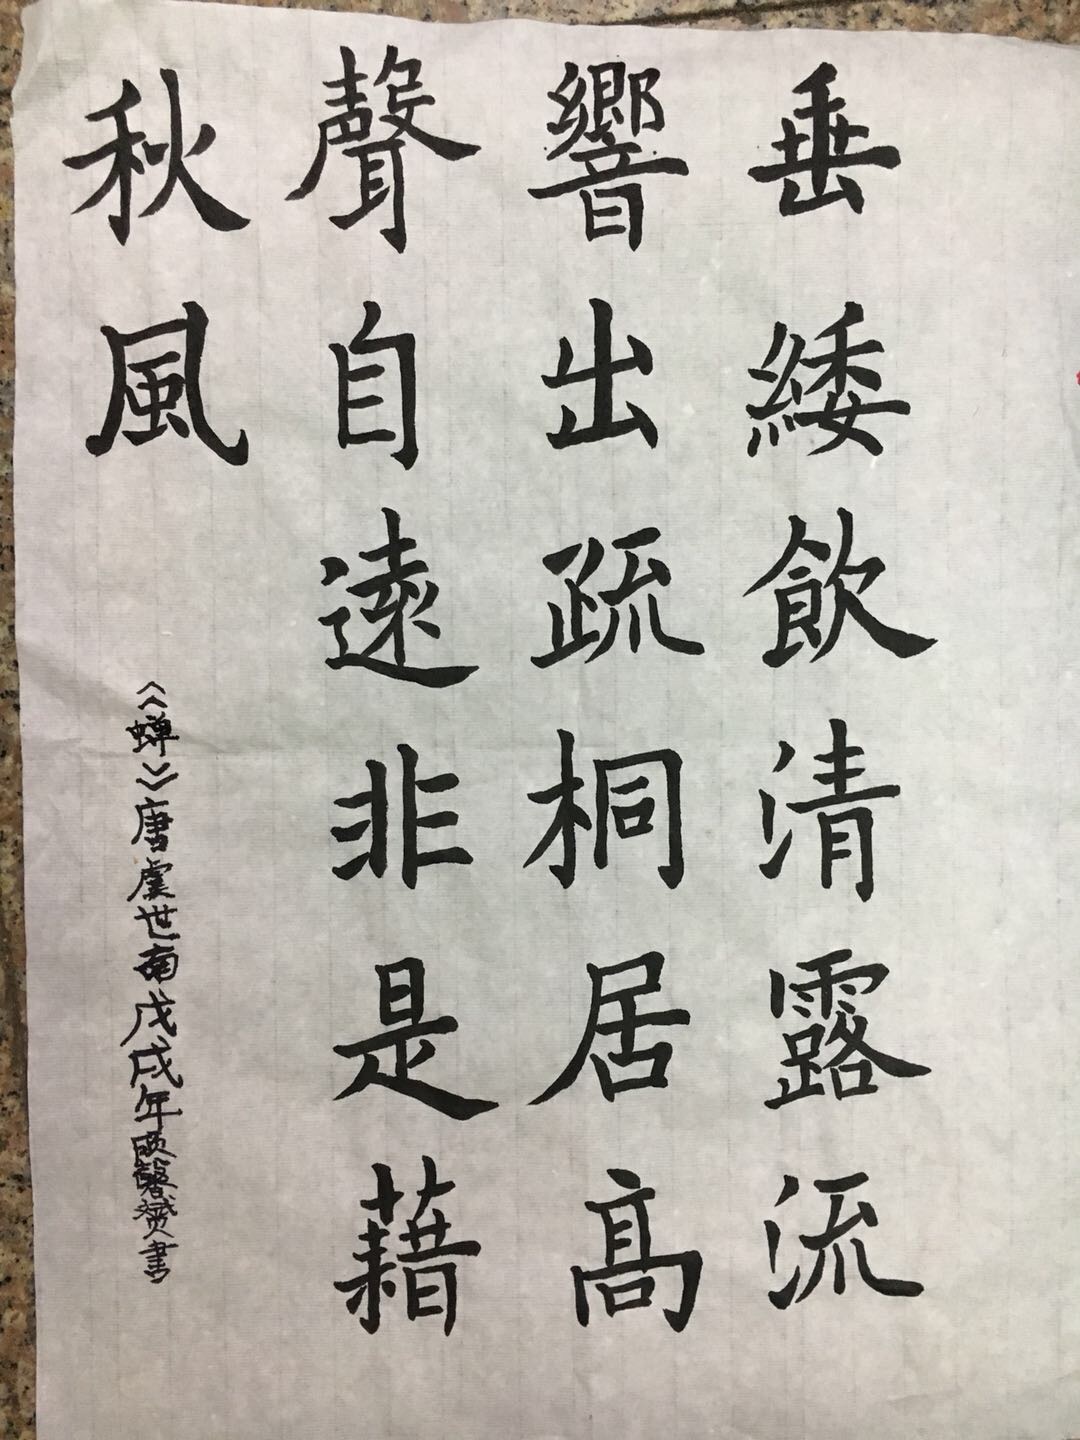 垂緌飲清露流
響出疏桐居高
聲自遠非是藉
秋風
《蝉》唐虞世南戊戌年馨赟書